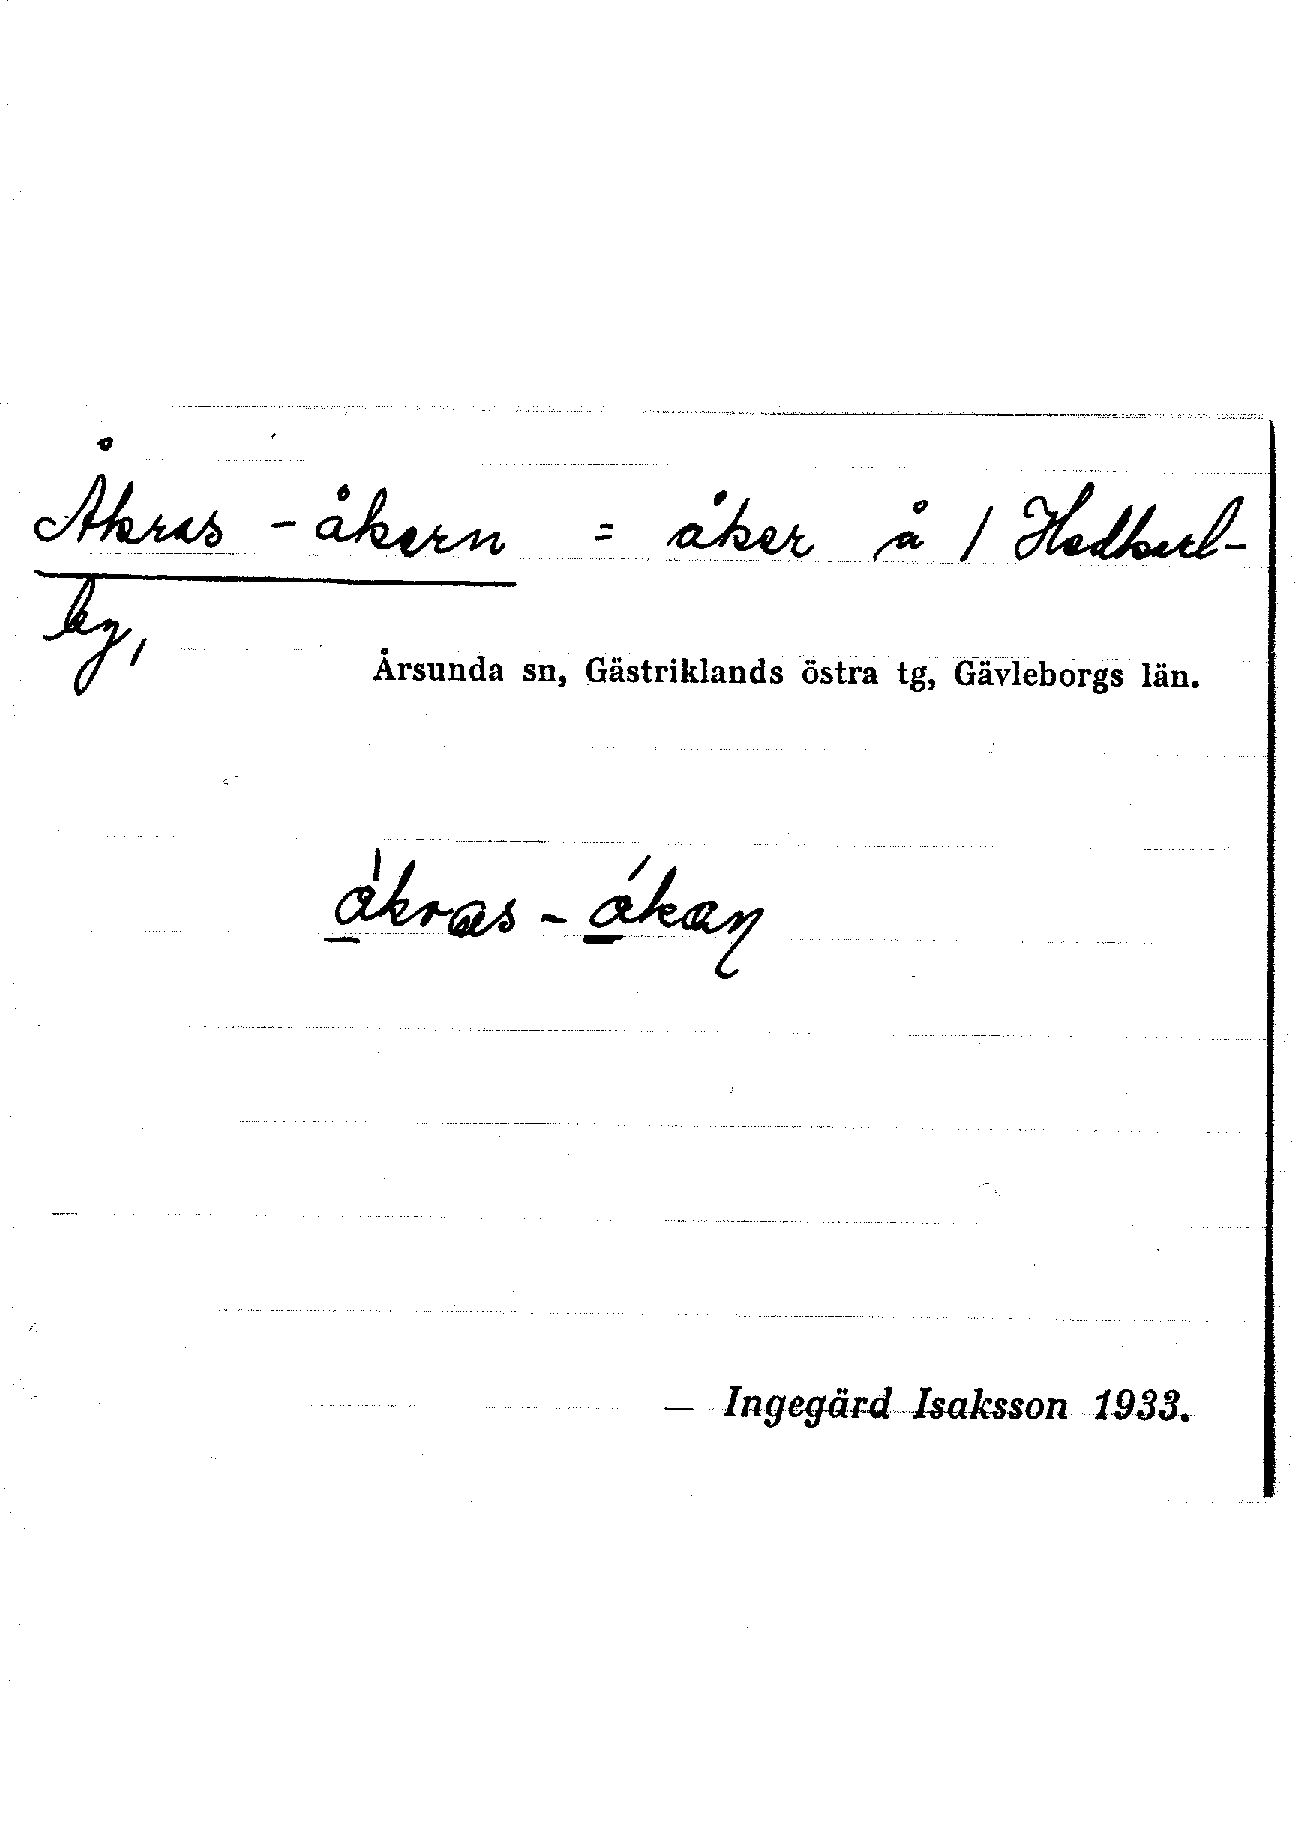 Åkras-åkern = åker å / Hedkarl-
by,
Årsunda sn, Gästriklands östra tg, Gävleborgs län.
åkras-åkaɳ
— Ingegärd Isaksson 1933.